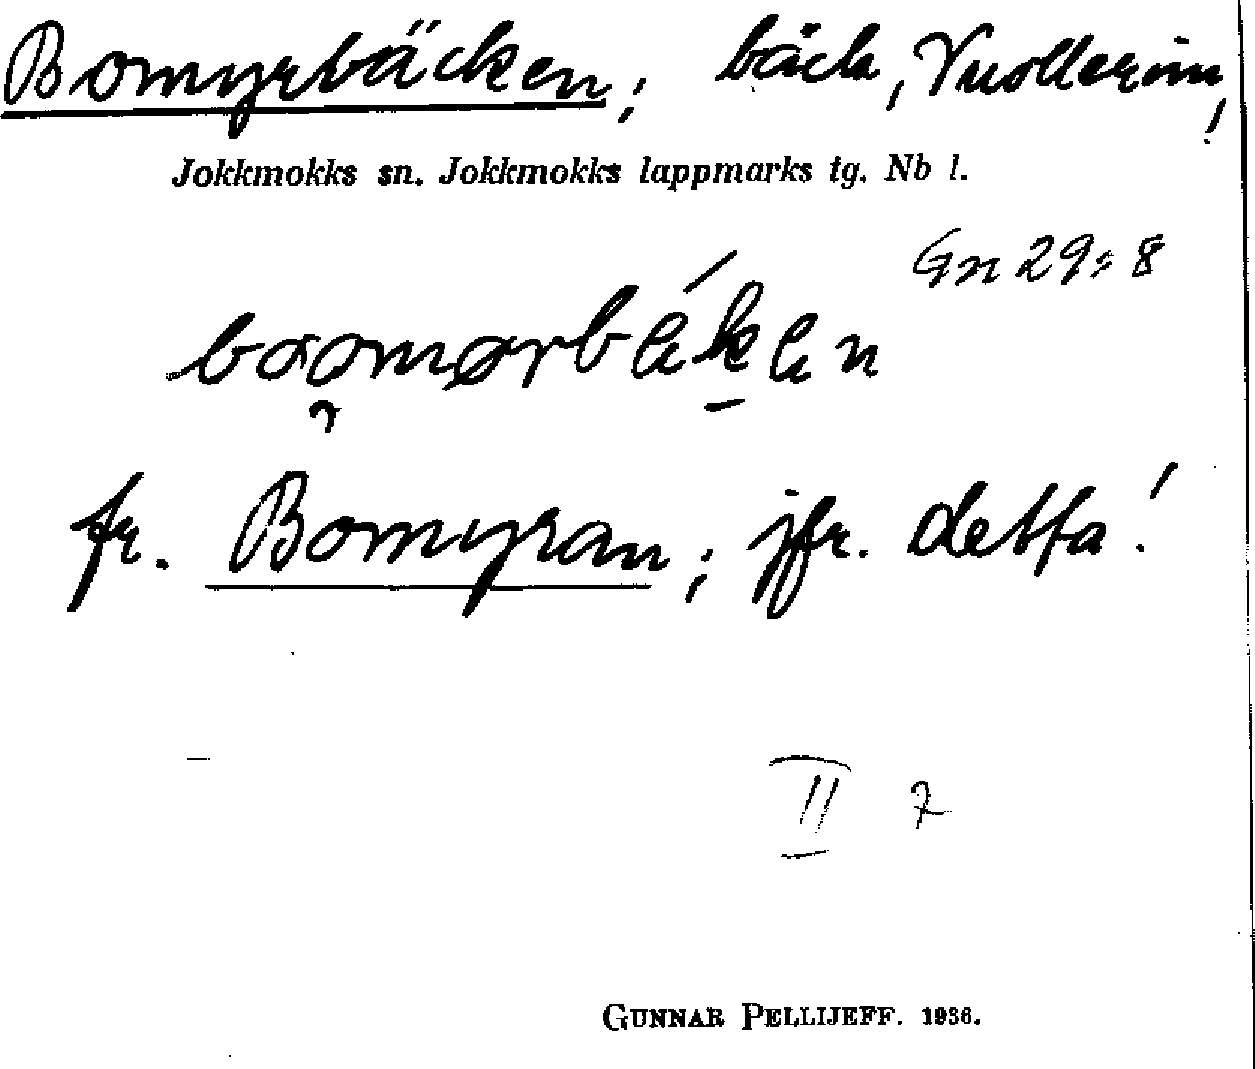 Bomyrbäcken; bäck, Vuollerim,
Jokkmokks sn. Jokkmokks lappmarks tg. Nb l.
Gn 29:8
fr. Bomyran; jfr. detta!
II 7
GUNNAR PELLIJEFF. 1936.